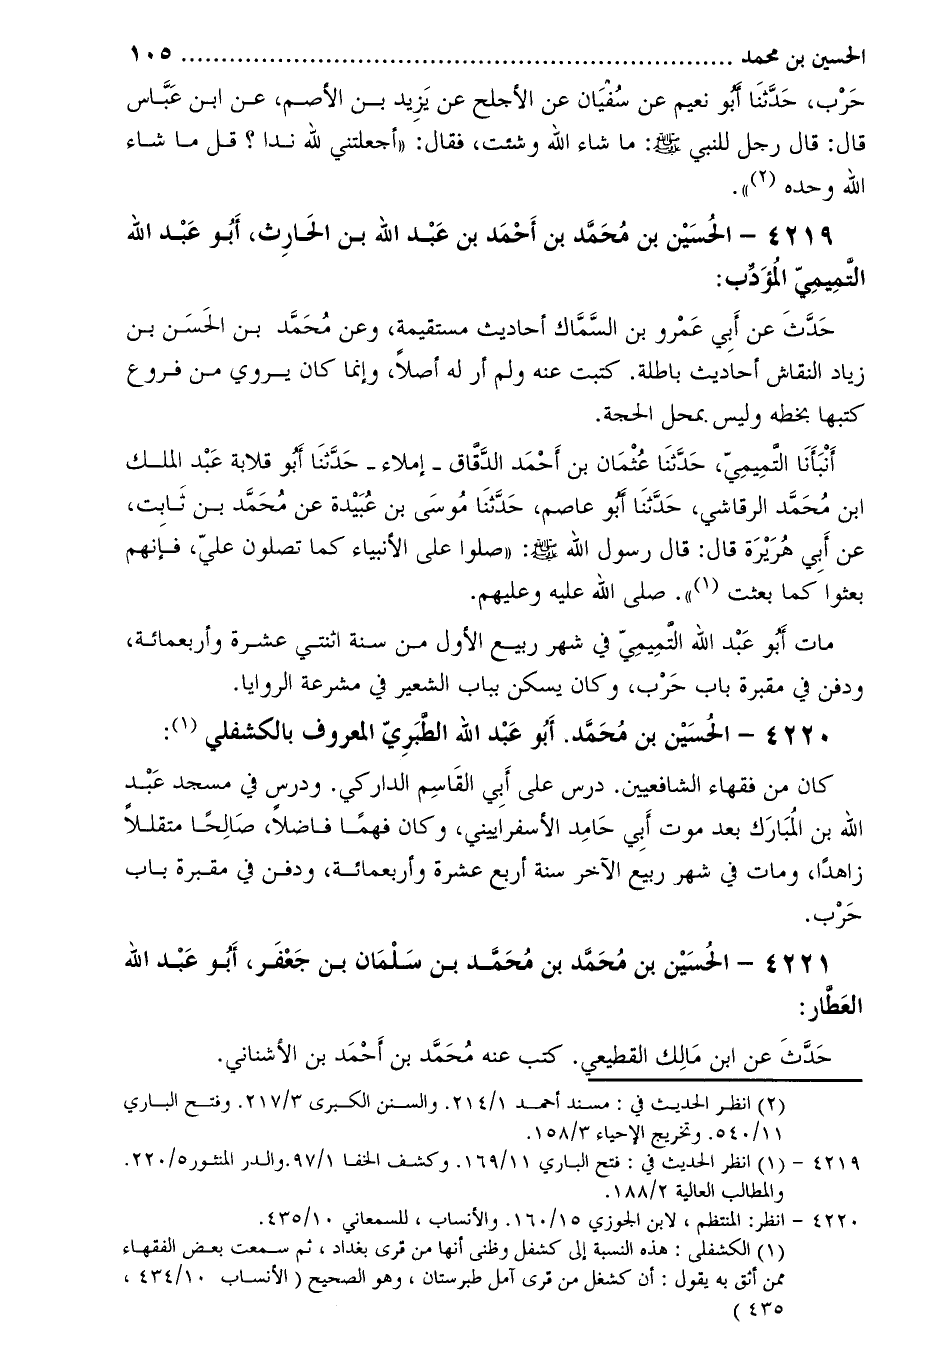 الحسين بن محمد ........................................................................ ١٠٥
حَرْب، حَدَّثَنَا أَبُو نعيم عن سُفْيَان عن الأجلح عن يَزِيد بـن الأصم، عـن ابـن عَبَّـاس
قال: قال رجل للنبي ﷺ: ما شاء الله وشئت، فقال: «أجعلتني لله نـدا ؟ قـل مـا شـاء
الله وحده (٢)».
٤٢١٩ – الحُسَيْن بن مُحَمَّد بن أَحْمَد بن عَبْـد الله بـن الحَـارِث، أَبُـو عَبْـد الله
التَّمِيمِيّ المُؤَدِّب:
حَدَّثَ عن أَبِي عَمْرو بن السَّمَّاك أحاديث مستقيمة، وعن مُحَمَّد بـن الحَسَـن بـن
زياد النقاش أحاديث باطلة. كتبت عنه ولم أر له أصلاً، وإنما كان يـروي مـن فـروع
كتبها بخطه وليس بمحل الحجة.
أَنْبَأَنَا التَّمِيمِيّ، حَدَّثَنَا عُثْمَان بن أَحْمَد الدَّقَّاق ـ إملاء ـ حَدَّثَنَا أَبُو قلابة عَبْد الملـك
ابن مُحَمَّد الرقاشي، حَدَّثَنَا أَبُو عاصم، حَدَّثَنَا مُوسَى بن عُبَيْدة عن مُحَمَّد بـن ثَـابِت،
عن أَبِي هُرَيْرَة قال: قال رسول الله ﷺ: «صلوا على الأنبياء كما تصلون عليّ، فـإنهم
بعثوا كما بعثت (١)». صلى الله عليه وعليهم.
مات أَبُو عَبْد الله التَّمِيمِيّ في شهر ربيع الأول مـن سـنة اثنتي عشـرة وأربعمائـة،
ودفن في مقبرة باب حَرْب، وكان يسكن بباب الشعير في مشرعة الروايا.
٤٢٢٠ – الحُسَيْن بن مُحَمَّد. أَبُو عَبْد الله الطَّبَرِيّ المعروف بالكشفلي (١):
كان من فقهاء الشافعيين. درس على أَبِي القَاسِم الداركي. ودرس في مسجد عَبْـد
الله بن المُبَارَك بعد موت أَبِي حَامِد الأسفراييني، وكان فهمًا فاضلاً، صَالِحًا متقلـلاً
زاهدًا، ومات في شهر ربيع الآخر سنة أربع عشرة وأربعمائـة، ودفـن في مقـبرة بـاب
حَرْب.
٤٢٢١ – الحُسَيْن بن مُحَمَّد بن مُحَمَّـد بـن سَـلْمَان بن جَعْفَـر، أَبُـو عَبْـد الله
العَطَّار:
حَدَّثَ عن ابن مَالِك القطيعي. كتب عنه مُحَمَّد بن أَحْمَد بن الأشناني.
(٢) انظر الحديث في : مسند أحمد ٢١٤/١. والسنن الكبرى ٢١٧/٣. وفتـح البـاري
٥٤٠/١١. وتخريج الإحياء ١٥٨/٣.
٤٢١٩ – (١) انظر الحديث في : فتح الباري ١٦٩/١١. وكشف الخفا ٩٧/١.والدر المنثور٢٢٠/٥.
والمطالب العالية ١٨٨/٢.
٤٢٢٠ – انظر: المنتظم ، لابن الجوزي ١٦٠/١٥. والأنساب ، للسمعاني ٤٣٥/١٠.
(١) الكشفلى : هذه النسبة إلى كشفل وظنى أنها من قرى بغداد ، ثم سمعت بعـض الفقهـاء
ممن أثق به يقول : أن كشغل من قرى آمل طبرستان ، وهو الصحيح ( الأنساب ٤٣٤/١٠ ،
٤٣٥ )